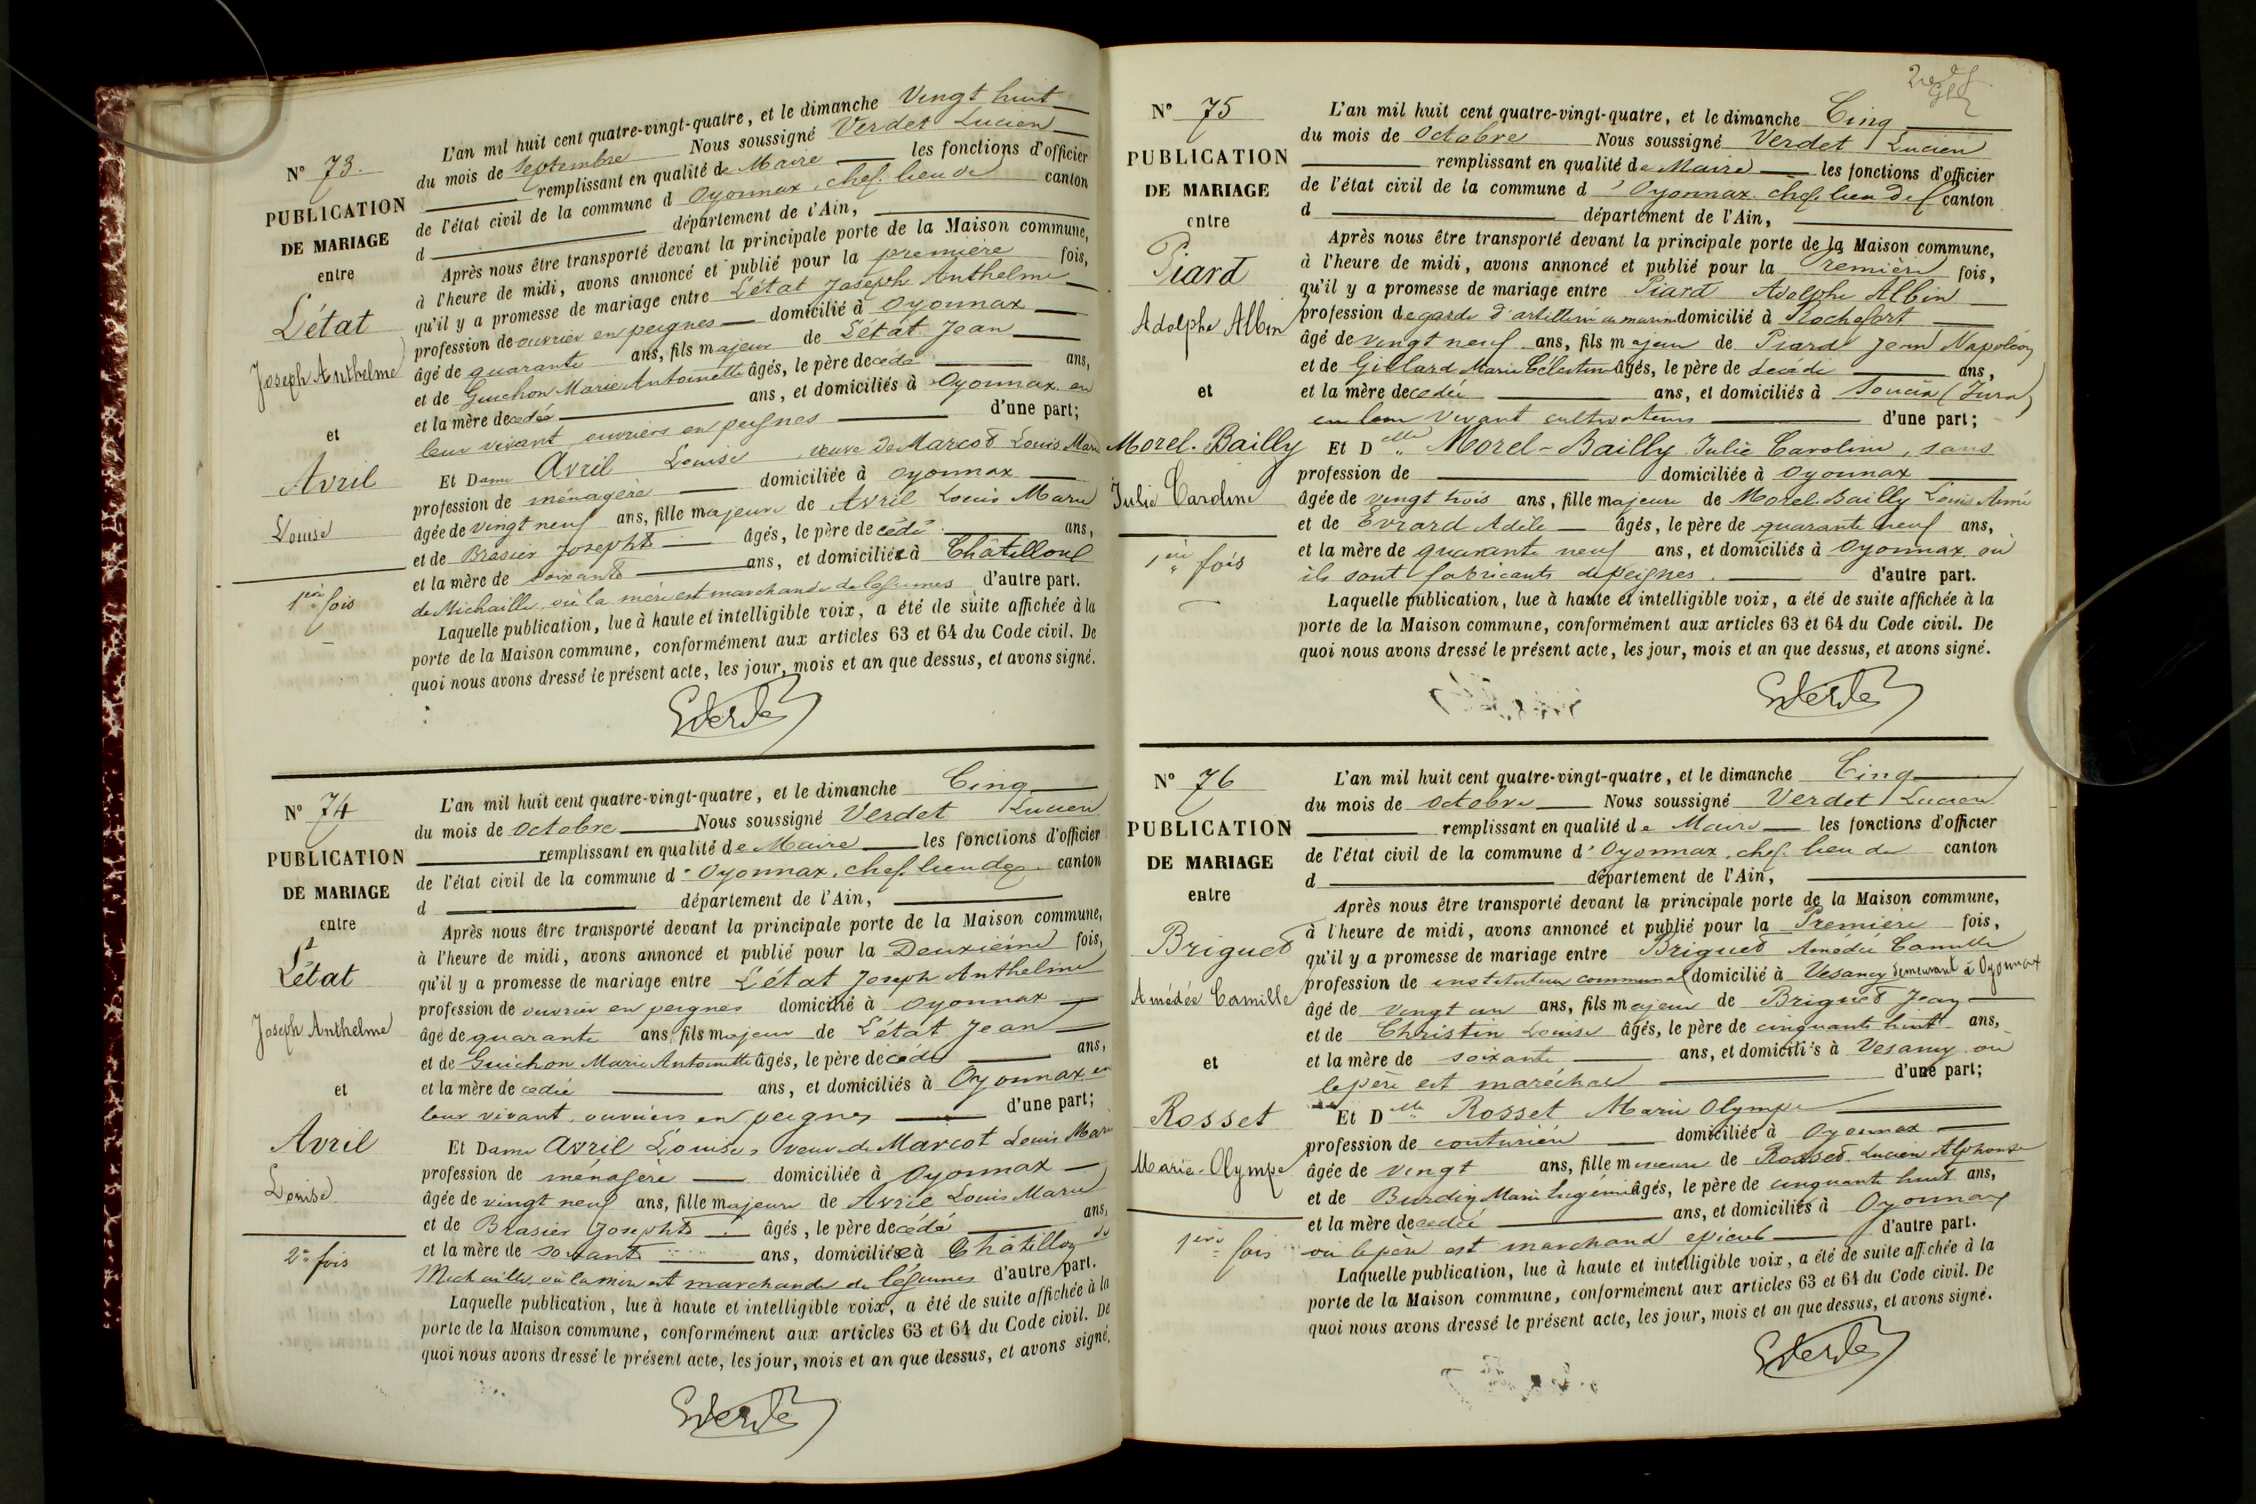 N° 73.
PUBLICATION
DE MARIAGE
entre
L'état
Joseph Anthelme
et
Avril
Louise
1ère fois
L'an mil huit cent quatre-vingt-quatre, et le dimanche Vingt huit
du mois de Septembre Nous soussigné Verdet Lucien
remplissant en qualité de Maire les fonctions d'officier
de l'état civil de la commune d Oyonnax, chef-lieu de canton
d département de l'Ain,
Après nous être transporté devant la principale porte de la Maison commune,
à l'heure de midi, avons annoncé et publié pour la première fois,
qu'il y a promesse de mariage entre L'état Joseph Anthelme
profession de ouvrier en peignes domicilié à Oyonnax
âgé de quarante ans, fils majeur de L'état Jean
et de Guichon Marie Antoinette âgés, le père decédé ans,
et la mère decedée ans, et domiciliés à Oyonnax en
leur vivant ouvriers en peignes d'une part;
Et Dame Avril Louise, veuve de Marcot Louis Marie
profession de ménagère domiciliée à Oyonnax
âgée de vingt neuf ans, fille majeure de Avril Louis Marie
et de Brasier Josephte âgés, le père de cédé ans,
et la mère de soixante ans, et domiciliée à Châtillon
de Michaille, où la mère est marchande de légumes d'autre part.
Laquelle publication, lue à haute et intelligible voix, a été de suite affichée à la
porte de la Maison commune, conformément aux articles 63 et 64 du Code civil. De
quoi nous avons dressé le présent acte, les jour, mois et an que dessus, et avons signé.
N° 74
PUBLICATION
DE MARIAGE
entre
L'état
Joseph Anthelme
et
Avril
Louise
2e fois
L'an mil huit cent quatre-vingt-quatre, et le dimanche Cinq
du mois de Octobre Nous soussigné Verdet Lucien
remplissant en qualité de Maire les fonctions d'officier
de l'état civil de la commune d' Oyonnax, chef-lieu de canton
d département de l'Ain,
Après nous être transporté devant la principale porte de la Maison commune,
à l'heure de midi, avons annoncé et publié pour la Deuxième fois,
qu'il y a promesse de mariage entre L'état Joseph Anthelme
profession de ouvrier en peignes domicilié à Oyonnax
âgé de quarante ans, fils majeur de L'état Jean
et de Guichon Marie Antoinette âgés, le père décédé ans,
et la mère de cedée ans, et domiciliés à Oyonnax en
leur vivant, ouvriers en peignes d'une part;
Et Dame Avril Louise, veuve de Marcot Louis Marie
profession de ménagère domiciliée à Oyonnax
âgée de vingt neuf ans, fille majeure de Avril Louis Marie
et de Brasier Josephte âgés, le père decédé ans,
et la mère de soixante ans, domiciliée à Châtillon de
Michaille, où la mère est marchande de légumes d'autre part.
Laquelle publication, lue à haute et intelligible voix, a été de suite affichée à la
porte de la Maison commune, conformément aux articles 63 et 64 du Code civil. De
quoi nous avons dressé le présent acte, les jour, mois et an que dessus, et avons signé.
N° 75
PUBLICATION
DE MARIAGE
entre
Piard
Adolphe Albin
et
Morel-Bailly
Julie Caroline
1ère fois
L'an mil huit cent quatre-vingt-quatre, et le dimanche Cinq
du mois de Octobre Nous soussigné Verdet Lucien
remplissant en qualité de Maire les fonctions d'officier
de l'état civil de la commune d' Oyonnax, chef-lieu de canton
d département de l'Ain,
Après nous être transporté devant la principale porte de la Maison commune,
à l'heure de midi, avons annoncé et publié pour la Première fois,
qu'il y a promesse de mariage entre Piard Adolphe Albin
profession de garde d'artillerie de marine domicilié à Rochefort
âgé de vingt neuf ans, fils majeur de Piard Jean Napoléon
et de Gillard Marie Célestine âgés, le père de décédé ans,
et la mère decedée ans, et domiciliés à Soucia (Jura)
en leur vivant cultivateurs d'une part;
Et Delle Morel-Bailly Julie Caroline, sans
profession de domiciliée à Oyonnax
âgée de vingt trois ans, fille majeure de Morel-Bailly Louis Aimé
et de Evrard Adèle âgés, le père de quarante neuf ans,
et la mère de quarante neuf ans, et domiciliés à Oyonnax où
ils sont fabricants de peignes. d'autre part.
Laquelle publication, lue à haute et intelligible voix, a été de suite affichée à la
porte de la Maison commune, conformément aux articles 63 et 64 du Code civil. De
quoi nous avons dressé le présent acte, les jour, mois et an que dessus, et avons signé.
N° 76
PUBLICATION
DE MARIAGE
entre
Briguet
Amédée Camille
et
Rosset
Marie-Olympe
1ère fois
L'an mil huit cent quatre-vingt-quatre, et le dimanche Cinq
du mois de Octobre Nous soussigné Verdet Lucien
remplissant en qualité de Maire les fonctions d'officier
de l'état civil de la commune d' Oyonnax, chef-lieu de canton
d département de l'Ain,
Après nous être transporté devant la principale porte de la Maison commune,
à l'heure de midi, avons annoncé et publié pour la Première fois,
qu'il y a promesse de mariage entre Briguet Amédée Camille
profession de instituteur communal domicilié à Vesancy demeurant à Oyonnax
âgé de vingt un ans, fils majeur de Briguet Jean
et de Christin Louise âgés, le père de cinquante huit ans,
et la mère de soixante ans, et domiciliés à Vesancy où
le père est maréchal d'une part;
Et Delle Rosset Marie Olympe
profession de couturière domiciliée à Oyonnax
âgée de vingt ans, fille mineure de Rosset Lucien Alphonse
et de Burdin Marie Eugénie âgés, le père de cinquante huit ans,
et la mère decedée ans, et domiciliés à Oyonnax
où le père est marchand epicier d'autre part.
Laquelle publication, lue à haute et intelligible voix, a été de suite affichée à la
porte de la Maison commune, conformément aux articles 63 et 64 du Code civil. De
quoi nous avons dressé le présent acte, les jour, mois et an que dessus, et avons signé.